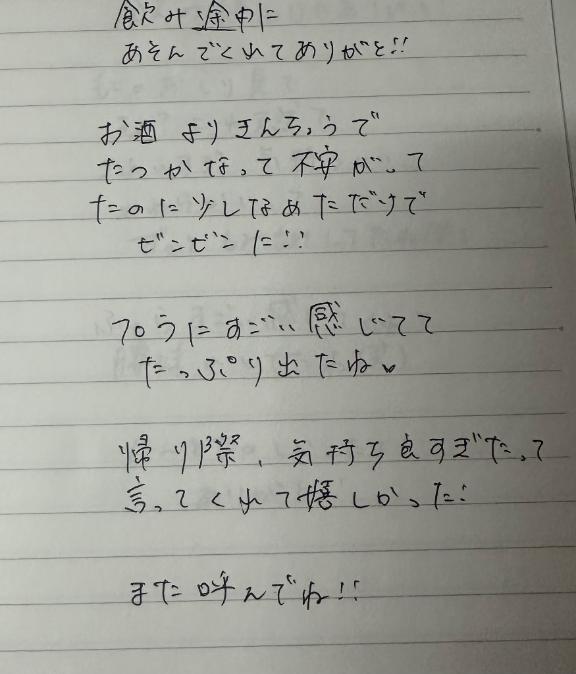 飲み途中に
あそんでくれてありがと!!
お酒よりきんちょうで
たつかなって不安がって
たのに少しなめただけで
ビンビンに!!
フロうにすごい感じてて
たっぷり出たね♥
帰り際、気持ち良すぎたって
言ってくれて嬉しかった!
また呼んでね!!